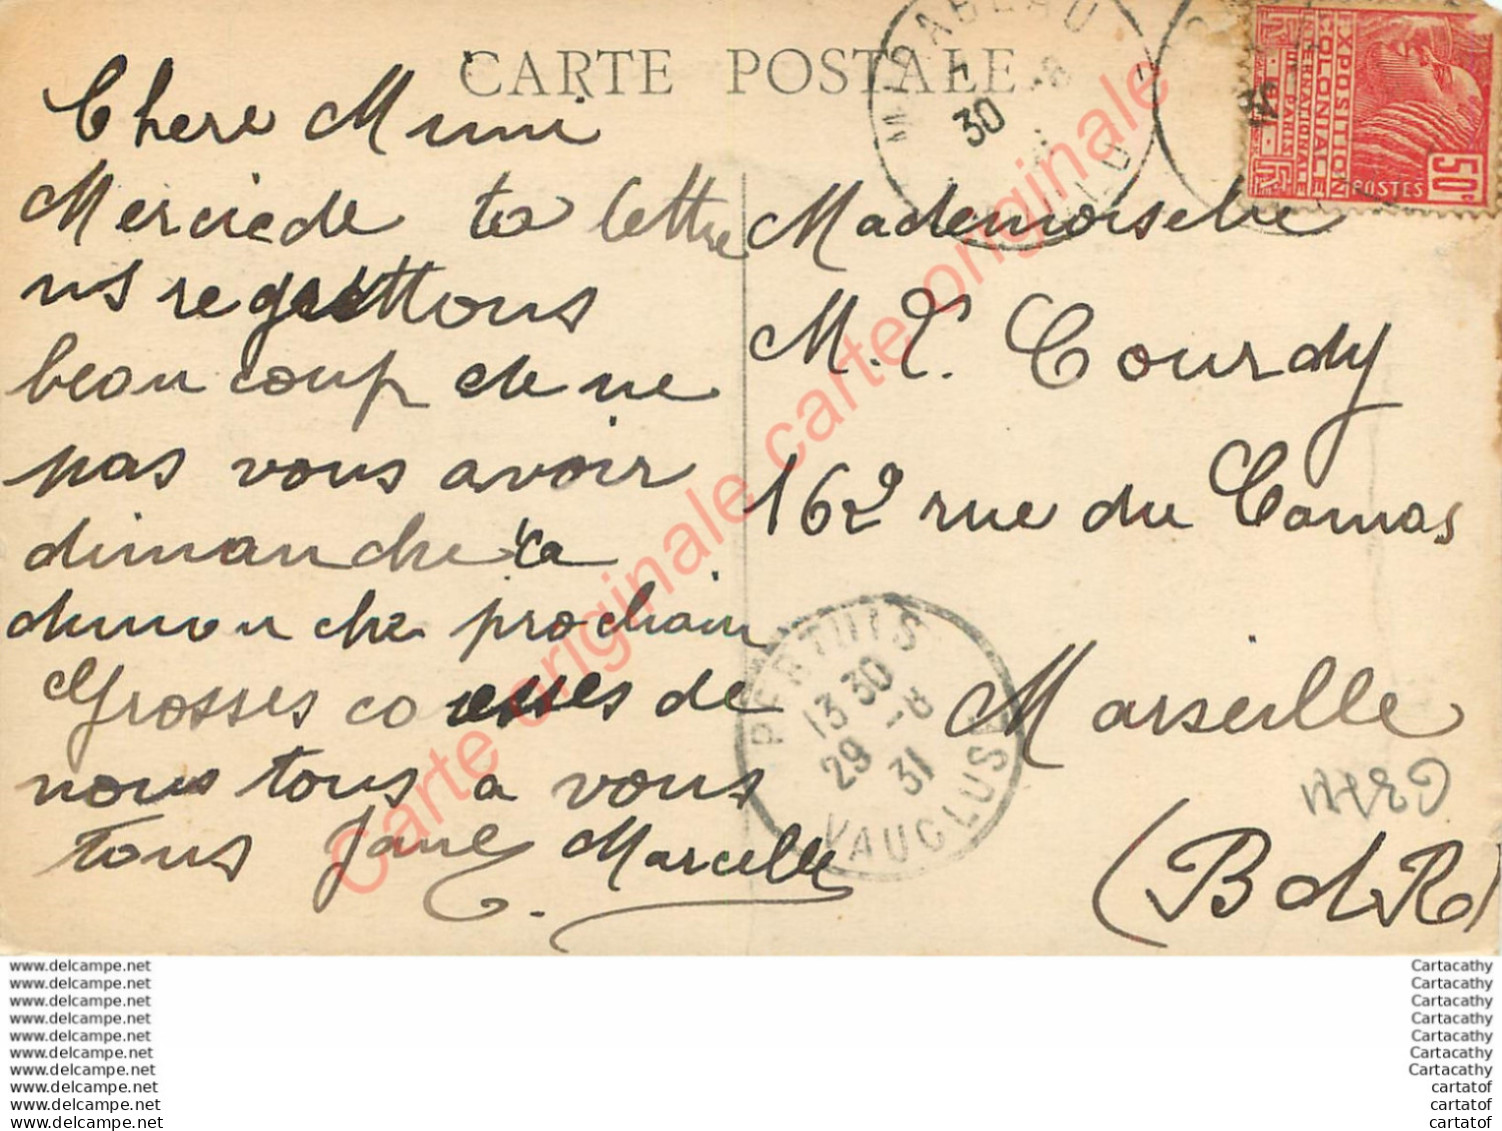 CARTE POSTALE
Chere Mimi
Merciede ta lettre
ns regrettons
beaucoup de ne
pas vous avoir
dimanche ca
dimanche prochain
Grosses caresses de
nous tous a vous
tous Jane Marcelle
Mademoiselle
M. T. Courdy
162 rue du Camas
Marseille
(B d R)
MIRABEAU
30 -8
EXPOSITION
COLONIALE
INTERNATIONALE
PARIS
POSTES
50c
PERTUIS
13 30
29 -8
31
VAUCLUSE
Carte originale carte originale
www.delcampe.net
www.delcampe.net
www.delcampe.net
www.delcampe.net
www.delcampe.net
www.delcampe.net
www.delcampe.net
www.delcampe.net
www.delcampe.net
www.delcampe.net
Cartacathy
Cartacathy
Cartacathy
Cartacathy
Cartacathy
Cartacathy
Cartacathy
cartatof
cartatof
cartatof